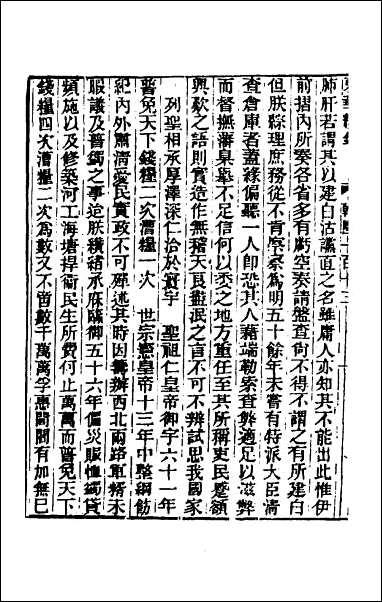 東華續錄　乾隆一百十三
肺肝若謂其以建白沽讜直之名雖庸人亦知其不能出此惟伊
前摺內所奏各省多有虧空奏請盤查尚不得不謂之有所建白
但朕綜理庶務從不肯察察為明五十餘年未嘗有特派大臣清
查倉庫者蓋緣偏聽一人即恐其人藉端勒索查弊適足以滋弊
而督撫藩臬舉不足信何以委之地方重任至其所稱吏民蹙額
興歎之語則實造作無稽天良盡泯之言不可不辨試思我國家
列聖相承厚澤深仁洽於寰宇　聖祖仁皇帝御宇六十一年
普免天下錢糧二次漕糧一次　世宗憲皇帝十三年中整綱飭
紀內外肅清愛民實政不可殫述其時因籌辦西北兩路軍糈未
暇議及普蠲之事迨朕纘緒承庥臨御五十六年偏災賑恤蠲貸
頻施以及修築河工海塘捍衛民生所費何止萬萬而普免天下
錢糧四次漕糧二次為數又不啻數千萬萬孚惠閭閻有加無已